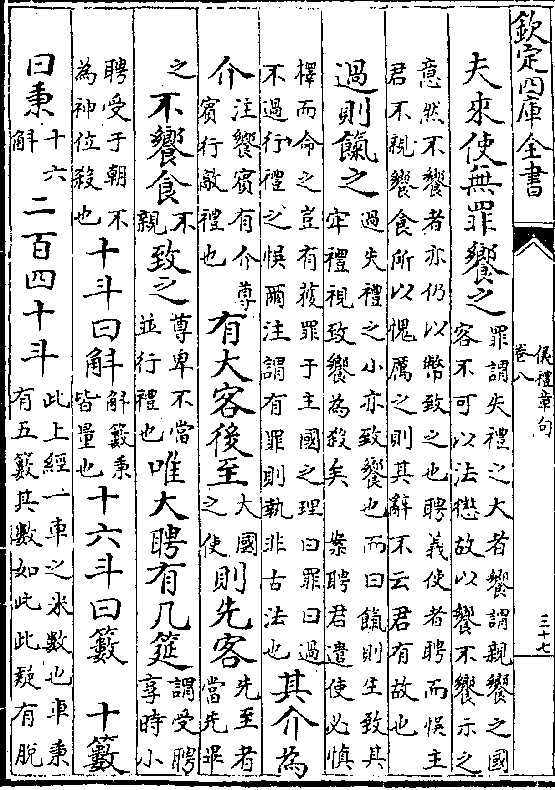 欽定四庫全書
儀禮章句
卷八
三十七
夫來使無罪饗之罪謂失禮之大者饗謂親饗之國客不可以法懲故以饗不饗示之
意然不饗者亦仍以幣致之也聘義使者聘而悮主君不親饗食所以愧厲之則其辭不云君有故也
過則餼之過失禮之小亦致饗也而曰餼則生致其牢禮視致饗為殺矣 案聘君遣使必慎
擇而命之豈有獲罪于主國之理曰罪曰過不過行禮之悮爾注謂有罪則執非古法也其介為
介注饗賓有介尊賓行敵禮也有大客後至大國之使則先客先至者當先罪
之不饗食不親致之尊卑不當並行禮也唯大聘有几筵謂受聘享時小
聘受于朝不為神位殺也十斗曰斛斛籔秉皆量也十六斗曰籔十籔
曰秉十六斛二百四十斗此上經一車之米數也車秉有五籔其數如此此疑有脫